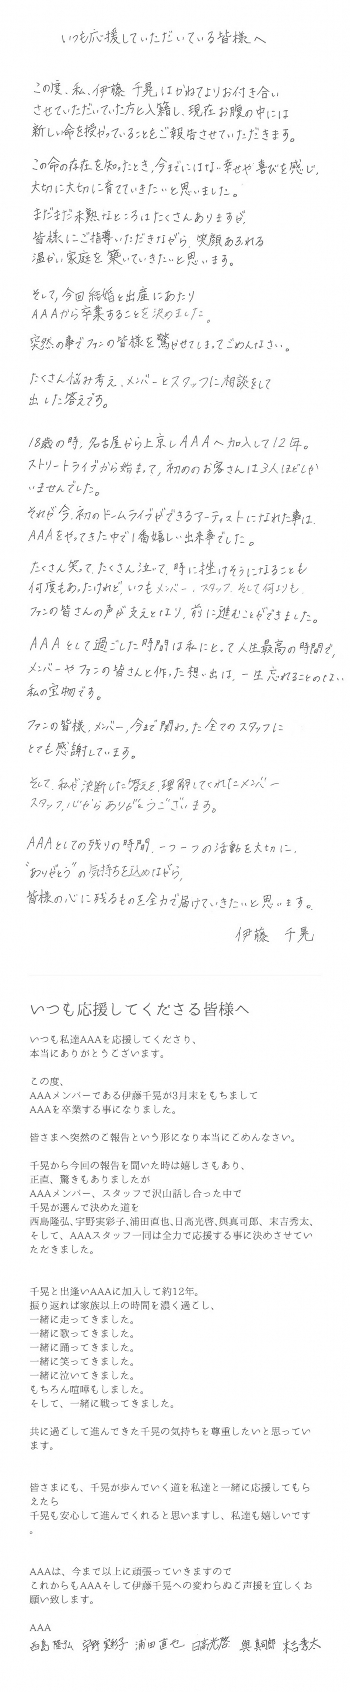 いつも応援していただいている皆様へ
この度、私、伊藤 千晃はかねてよりお付き合い
させていただいていた方と入籍し、現在お腹の中には
新しい命を授かっていることをご報告させていただきます。
この命の存在を知ったとき、今までにはない幸せや喜びを感じ、
大切に大切に育てていきたいと思いました。
まだまだ未熟なところはたくさんありますが、
皆様にご指導いただきながら、笑顔あふれる
温かい家庭を築いていきたいと思います。
そして、今回結婚と出産にあたり
AAAから卒業することを決めました。
突然の事でファンの皆様を驚かせてしまってごめんなさい。
たくさん悩み考え、メンバーとスタッフに相談をして
出した答えです。
18歳の時、名古屋から上京しAAAへ加入して12年。
ストリートライブから始まって、初めのお客さんは3人ほどしか
いませんでした。
それが今、初のドームライブができるアーティストになれた事は、
AAAをやってきた中で1番嬉しい出来事でした。
たくさん笑って、たくさん泣って、時に挫けそうになることも
何度もあったけれど、いつもメンバー、スタッフ、そして何よりも
ファンの皆さんの声が支えとなり、前に進むことができました。
AAAとして過ごした時間は私にとって人生最高の時間で、
メンバーやファンの皆さんと作った想い出は、一生忘れることのない
私の宝物です。
ファンの皆様、メンバー、今まで関わった全てのスタッフに
とても感謝しています。
そして、私が決断した答えを理解してくれたメンバー
スタッフ、心からありがとうございます。
AAAとしての残りの時間、一つ一つの活動を大切に、
"ありがとう"の気持ちを込めながら、
皆様の心に残るものを全力で届けていきたいと思います。
伊藤 千晃
いつも応援してくださる皆様へ
いつも私達AAAを応援してくださり、
本当にありがとうございます。
この度、
AAAメンバーである伊藤千晃が3月末をもちまして
AAAを卒業する事になりました。
皆さまへ突然のご報告という形になり本当にごめんなさい。
千晃から今回の報告を聞いた時は嬉しさもあり、
正直、驚きもありましたが
AAAメンバー、スタッフで沢山話し合った中で
千晃が選んで決めた道を
西島隆弘、宇野実彩子、浦田直也、日高光啓、與真司郎、末吉秀太、
そして、AAAスタッフ一同は全力で応援する事に決めさせてい
ただきました。
千晃と出逢いAAAに加入して約12年。
振り返れば家族以上の時間を濃く過ごし、
一緒に走ってきました。
一緒に歌ってきました。
一緒に踊ってきました。
一緒に笑ってきました。
一緒に泣いてきました。
もちろん喧嘩もしました。
そして、一緒に戦ってきました。
共に過ごして進んできた千晃の気持ちを尊重したいと思ってい
ます。
皆さまにも、千晃が歩んでいく道を私達と一緒に応援してもら
えたら
千晃も安心して進んでくれると思いますし、私達も嬉しいです
。
AAAは、今まで以上に頑張っていきますので
これからもAAAそして伊藤千晃への変わらぬご声援を宜しくお
願い致します。
AAA
西島隆弘 宇野実彩子 浦田直也 日高光啓 與真司郎 末吉秀太